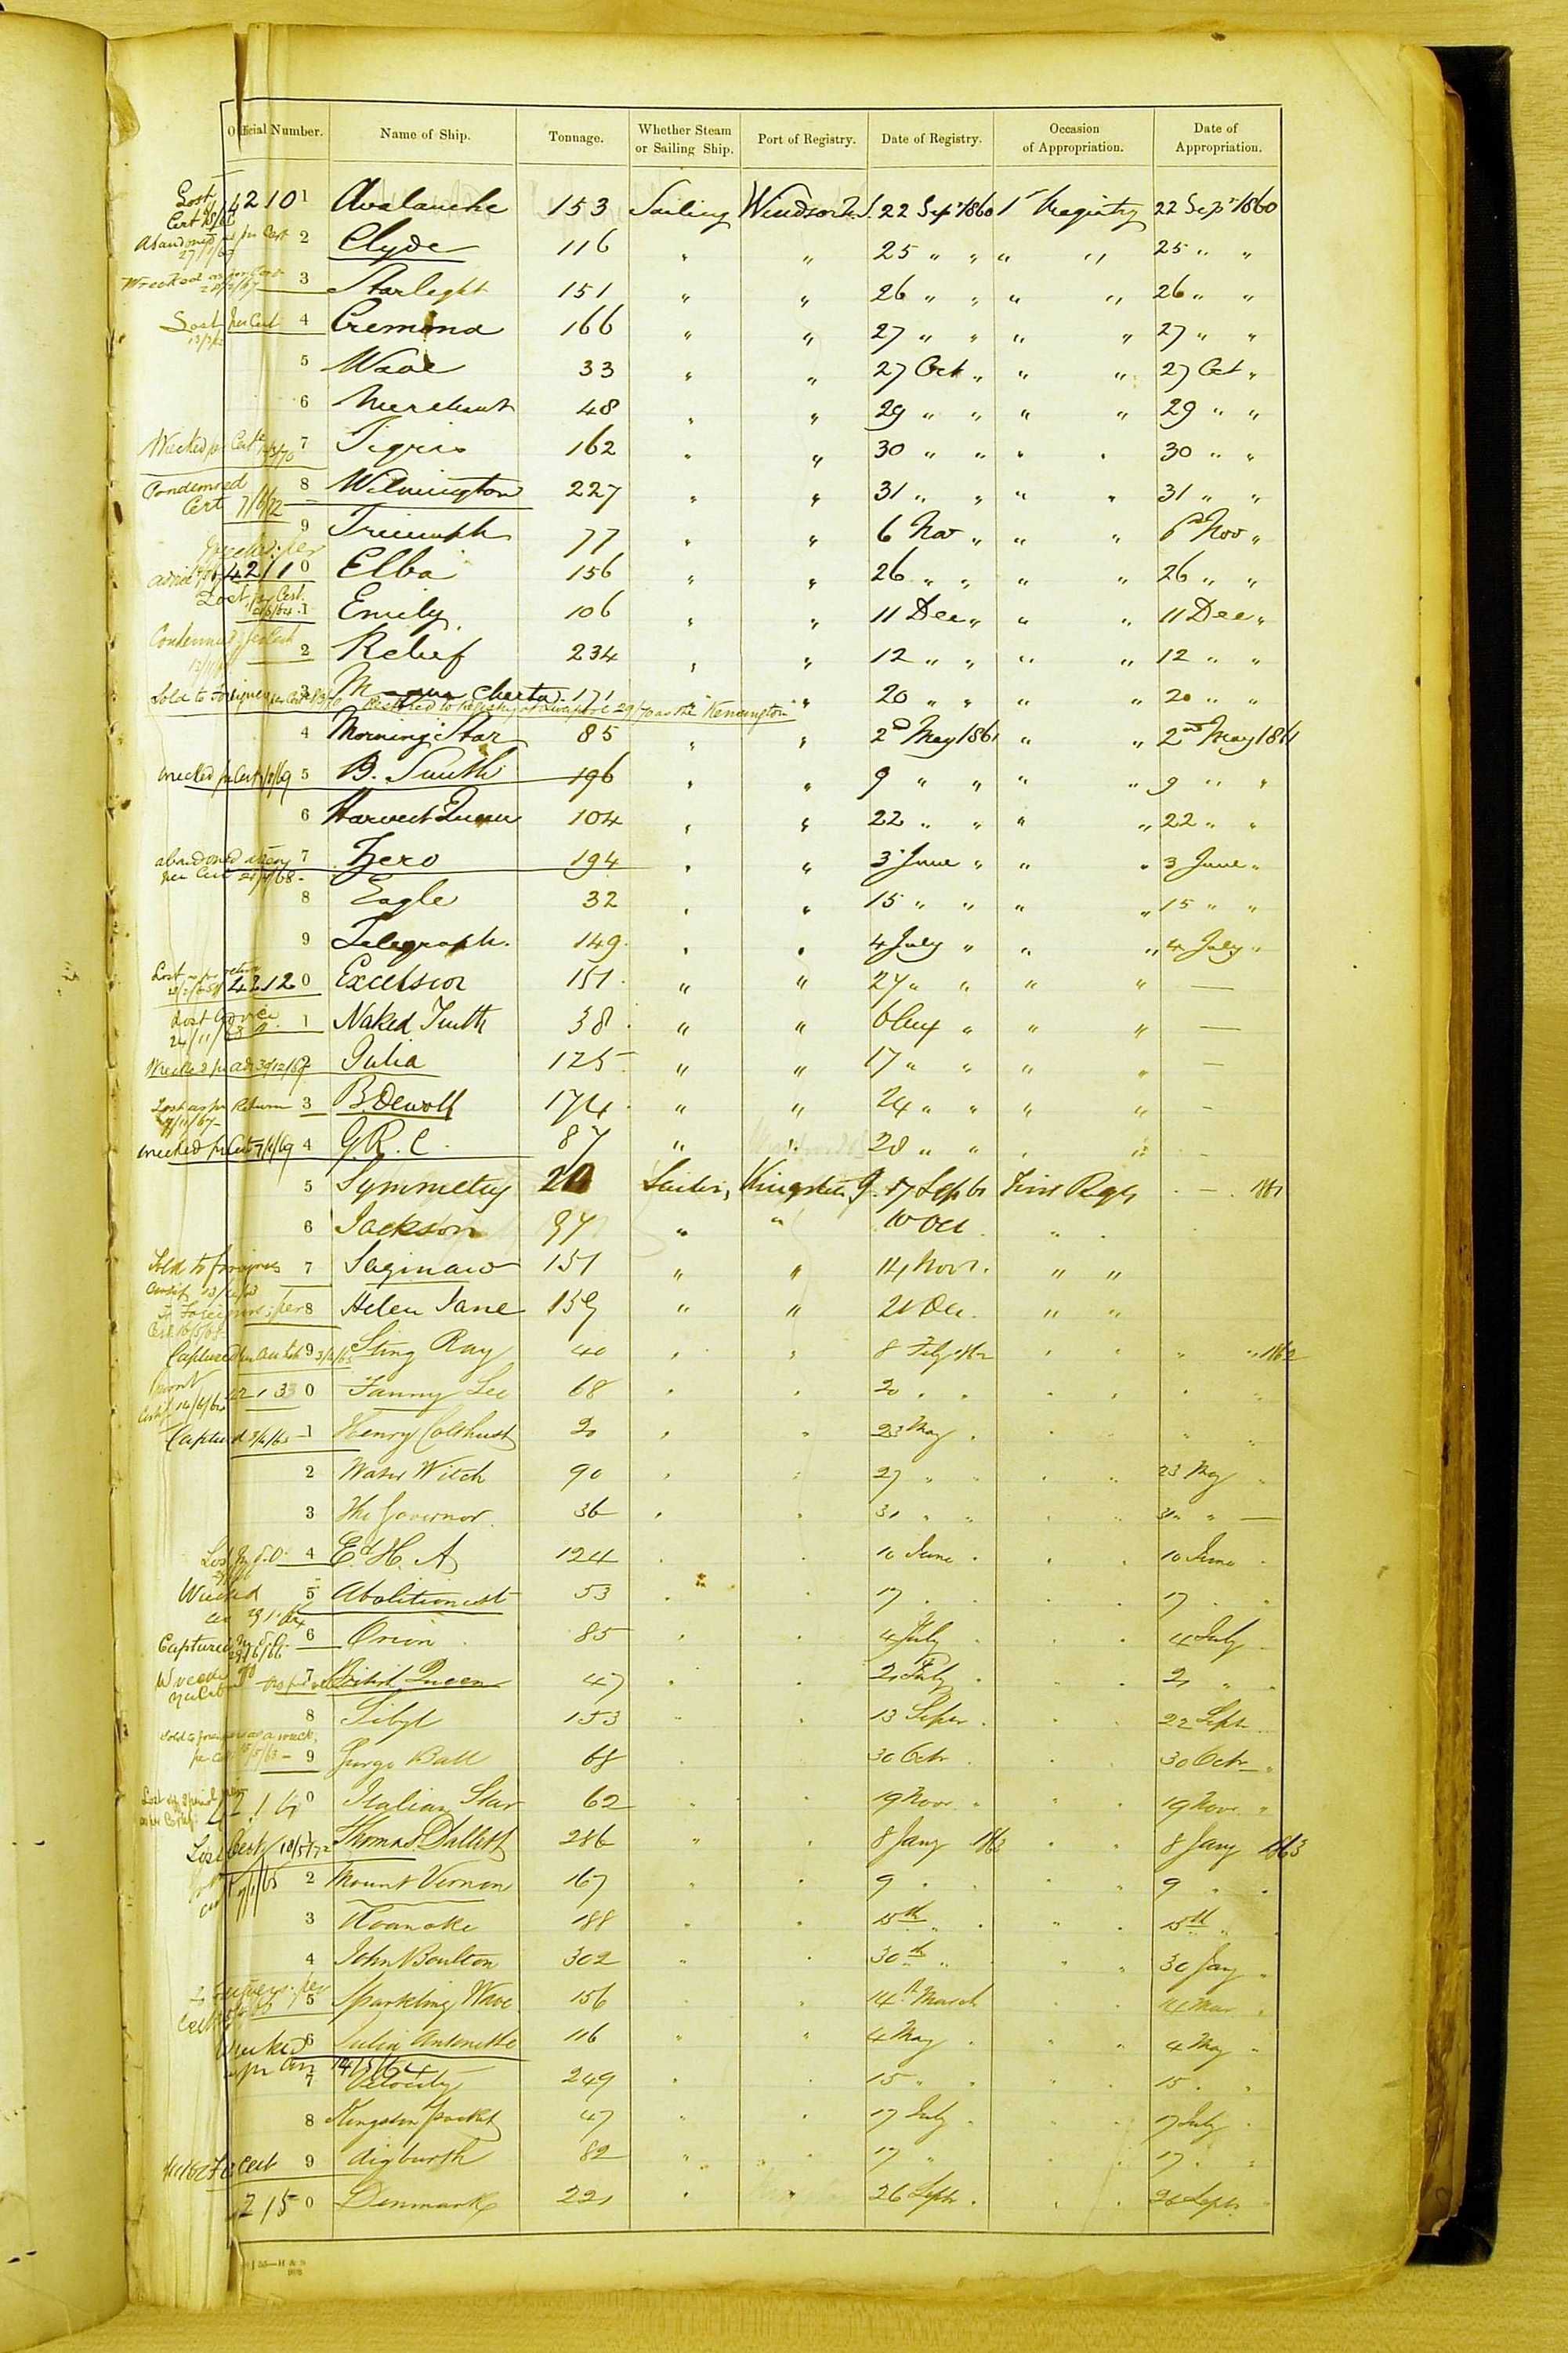 Official Number. Name of Ship. Tonnage. Whether Steam or Sailing Ship. Port of Registry. Date of Registry. Occasion of Appropriation. Date of Appropriation.
Lost 4210 1 Avalanche 153 Sailing Windsor N.S. 22 Sepr 1860 1st Registry 22 Sepr 1860
Abandoned as per Cert 2 Clyde 116 " " 25 " " " " 25 " "
Wrecked as per Cert 3 Starlight 151 " " 26 " " " " 26 " "
Lost per Cert 4 Cremona 166 " " 27 " " " " 27 " "
5 Wave 33 " " 27 Oct " " " 27 Oct "
6 Merchant 48 " " 29 " " " " 29 " "
Wrecked per Cert 7 Tigris 162 " " 30 " " " " 30 " "
Condemned Cert 7/6/72 8 Wilmington 227 " " 31 " " " " 31 " "
9 Triumph 77 " " 6 Nov " " " 6 Nov "
4211 0 Elba 156 " " 26 " " " " 26 " "
Lost per Cert. 1 Emily 106 " " 11 Dec " " " 11 Dec "
Condemned per Cert 2 Relief 234 " " 12 " " " " 12 " "
Sold to Foreigners per Cert 3 Charta 171 " 20 " " " " 20 " "
Restored to Registry at Liverpool 29/70 as the "Kensington"
4 Morning Star 85 " " 2d May 1861 " " 2nd May 1861
Wrecked per Cert 5 B. Smith 196 " " 9 " " " " 9 " "
6 Harvest Queen 104 " " 22 " " " " 22 " "
abandoned at sea per Cert 7 Hero 194 " " 3 June " " " 3 June "
8 Eagle 32 " " 15 " " " " 15 " "
9 Telegraph. 149 " " 4 July " " " 4 July "
Lost as per return 4212 0 Excelsior 151 " " 27 " " " " —
Lost advice 24/11/63 1 Naked Truth 38 " " 6 Aug " " " —
Wrecked per adv 30/12/67 2 Julia 125 " " 17 " " " " —
Lost as per Return 3 B. Dewolf 174 " " 24 " " " " —
Wrecked per Cert 4 G. R. C. 87 " " 28 " " " " —
5 Symmetry 20 Sailing Kingston J. 17 Sep 61 First Regy — 1861
6 Jackson 97 " " 10 Oct " "
Sold to foreigners 7 Saginaw 151 " " 14 Novr. " "
To Foreigners per 8 Helen Jane 159 " " 21 Dec. " "
Captured 9 Sting Ray 40 " " 8 Feby 1862 " " " " 1862
0 Fanny Lee 68 " " 20 " " " " " "
Captured 1 Henry Colthirst 20 " " 23 May " " " " "
2 Water Witch 90 " " 27 " " " " 23 May "
3 The Governor 36 " " 31 " " " " 31 " —
4 Ed. H. A 124 " " 10 June " " " 10 June "
Wrecked 5 Abolitionist 53 " " 17 " " " " 17 " "
Captured 6 Orion 85 " " 4 July " " " 4 July
7 British Queen 47 " " 21 July " " " 21 " "
Sold to foreigners as a wreck, 8 Sibyl 153 " " 13 Septr " " " 22 Sept
9 George Ball 68 " " 30 Octr " " " 30 Octr "
4214 0 Italian Star 62 " " 19 Novr. " " " 19 Nov. "
Lost Cert 10/5/72 1 Thomas Dallett 286 " " 8 Jany 1863 " " 8 Jany 1863
2 Mount Vernon 167 " " 9 " " " " 9 " "
3 Roanoke 188 " " 15th " " " " 15th " "
4 John Boulton 302 " " 30th " " " " 30 Jany "
5 Sparkling Wave 156 " " 14th March " " 14 Mar "
Wrecked 6 Julia Antoinette 116 " " 4 May " " " 4 May "
14/5/64
7 Velocity 249 " " 15 " " " " 15 " "
8 Kingston Packet 47 " " 17 July " " " 17 July "
Cert 9 Aigburth 82 " " 17 " " " 17 " "
4215 0 Denmark 221 " " 26 Septr " " " 26 Septr "